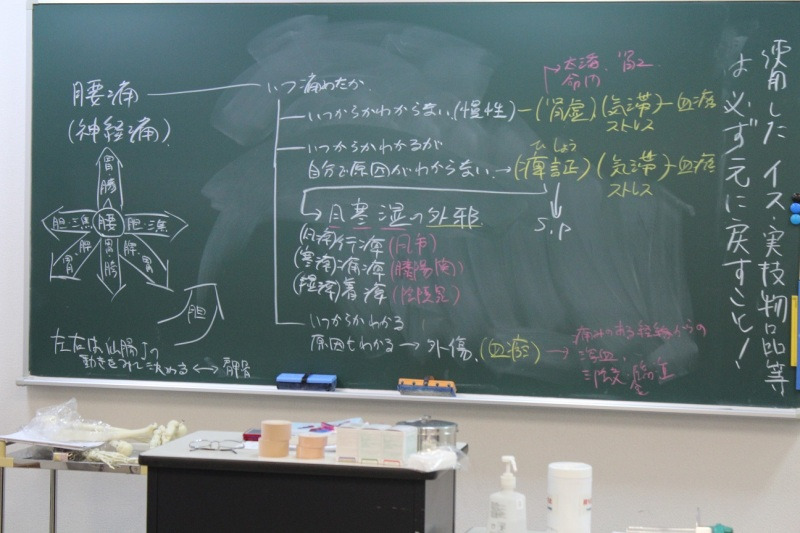 使用した イス・実技物品等
は必ず元に戻すこと!
腰痛
(神経痛)
いつ痛めたか
太谿、腎兪
命門
いつからかわからない(慢性)-(腎虚)(気滞)-血瘀
ストレス
いつからかわかるが
ひしょう
自分で原因がわからない→(痺証)(気滞)-血瘀
ストレス
S.P
風寒湿の外邪
(風痹)行痹(風市)
(寒痹)痛痹(腰陽関)
着痹(陰陵泉)
いつからかわかる
原因もわかる→外傷(血瘀)→痛みのある経絡からの
瀉血
胃・腸
胆・三焦
腰
胆・三焦
胃
脾
胃
脾
胃
胆
左右は仙腸Jの
動きをみて決める